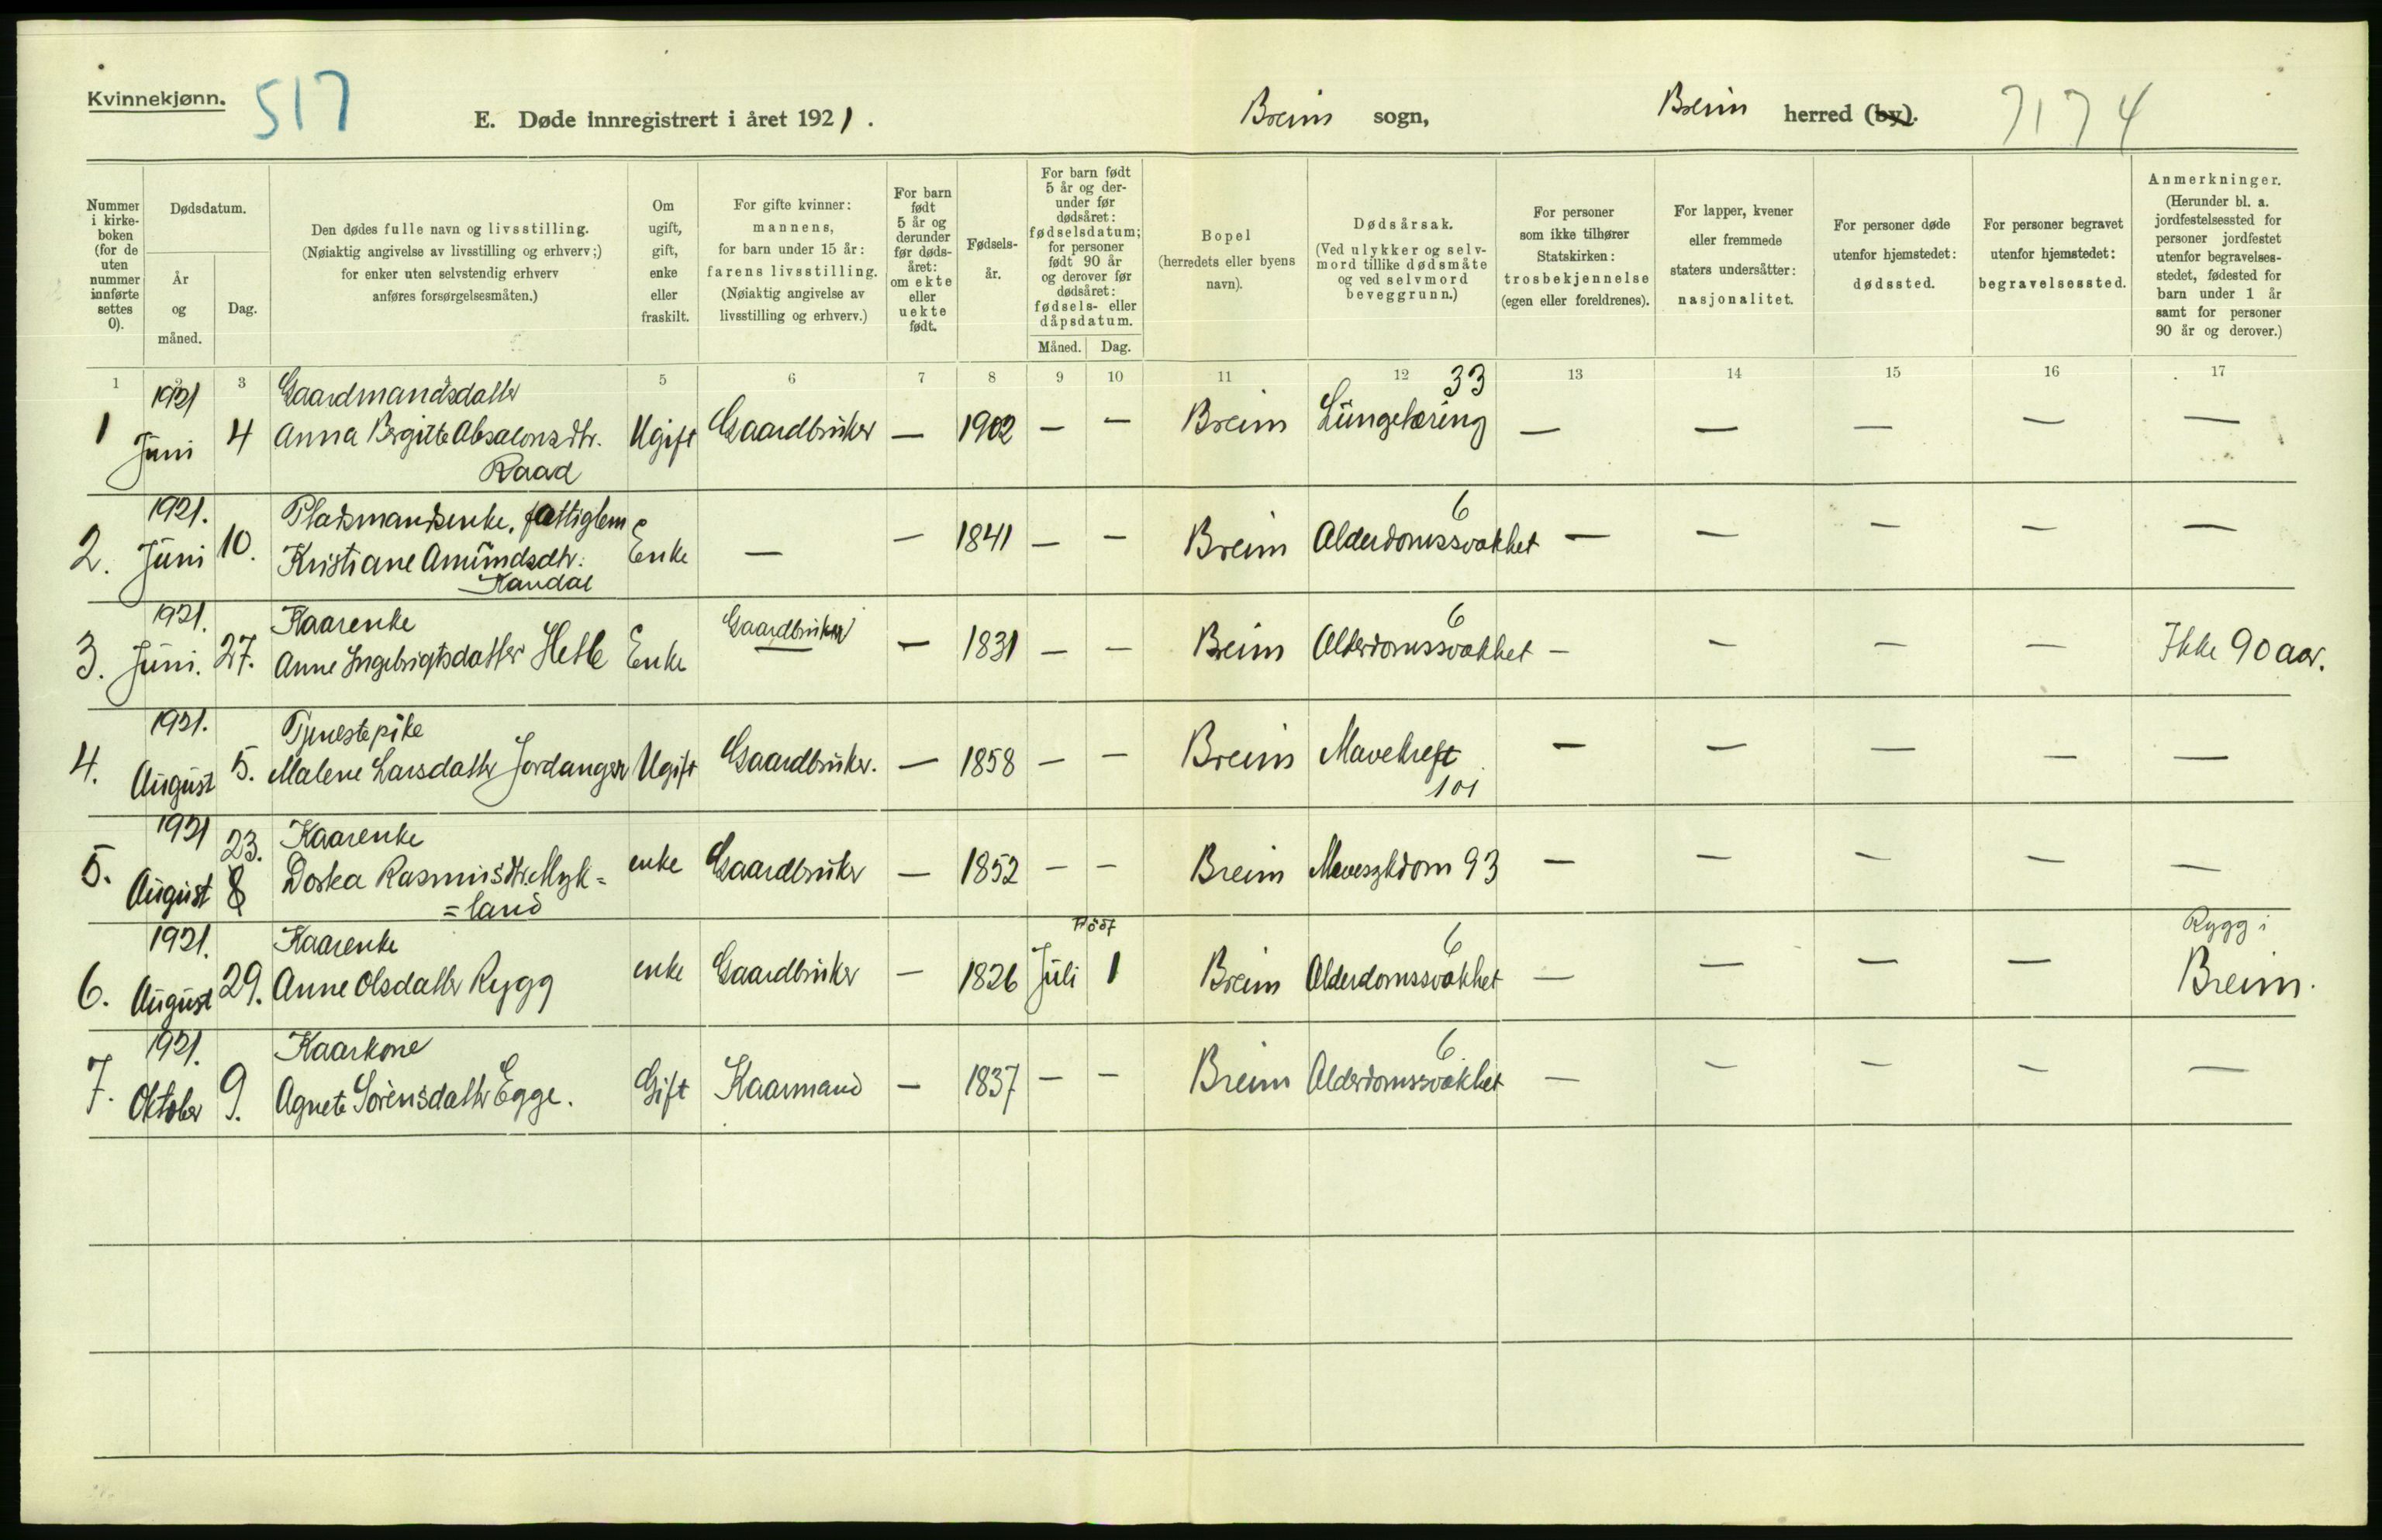 Kvinnekjønn.
517
E. Døde innregistrert i året 1921.
Breim sogn,
Breim herred (by).
7174
Nummer i kirke-boken (for de uten nummer innførte settes 0).
Dødsdatum.
År og måned.
Dag.
Den dødes fulle navn og livsstilling.
(Nøiaktig angivelse av livsstilling og erhverv;)
for enker uten selvstendig erhverv
anføres forsørgelsesmåten.)
Om ugift, gift, enke eller fraskilt.
For gifte kvinner: mannens,
for barn under 15 år:
farens livsstilling.
(Nøiaktig angivelse av
livsstilling og erhverv.)
For barn født 5 år og derunder før døds-året: om ekte eller uekte født.
Fødsels-år.
For barn født 5 år og der-under før dødsåret: fødselsdatum; for personer født 90 år og derover før dødsåret: fødsels- eller dåpsdatum.
Måned. Dag.
Bopel
(herredets eller byens
navn).
Dødsårsak.
(Ved ulykker og selv-
mord tillike dødsmåte
og ved selvmord
beveggrunn.)
For personer
som ikke tilhører
Statskirken:
trosbekjennelse
(egen eller foreldrenes).
For lapper, kvener
eller fremmede
staters undersåtter:
nasjonalitet.
For personer døde
utenfor hjemstedet:
dødssted.
For personer begravet
utenfor hjemstedet:
begravelsessted.
Anmerkninger.
(Herunder bl. a.
jordfestelsessted for
personer jordfestet
utenfor begravelses-
stedet, fødested for
barn under 1 år
samt for personer
90 år og derover.)
1 2 3 4 5 6 7 8 9 10 11 12 13 14 15 16 17
1921 Gaardmandsdatter 33
1 Juni 4 Anna Bergitte Absalonsdtr. Ugift Gaardbruker — 1902 — — Breim Lungetæring — — — — —
Raad
1921. Pladsmandsenke, fattiglem 6
2. Juni 10. Kristiane Amundsdtr. Enke — — 1841 — — Breim Alderdomssvakhet — — — — —
Kandal
1921. Kaarenke Gaardbruker 6
3. Juni. 27. Anne Ingebrigtsdatter Hetle Enke — 1831 — — Breim Alderdomssvakhet — — — — Ikke 90 aar.
1921. Tjenestepike
4. August 5. Malene Larsdatter Jordanger Ugift Gaardbruker. — 1858 — — Breim Mavekreft — — — — —
101
1921 23. Kaarenke
5. August 8 Dortea Rasmusdtr. Myk= enke Gaardbruker — 1852 — — Breim Mavesykdom 93 — — — — —
=land
1921. Kaarenke Født 6 Rygg i
6. August 29. Anne Olsdatter Rygg enke Gaardbruker — 1826 Juli 1 Breim Alderdomssvakhet — — — — Breim.
1921. Kaarkone 6
7. Oktober 9. Agnete Sörensdatter Egge. Gift Kaarmand — 1837 — — Breim Alderdomssvakhet — — — — —